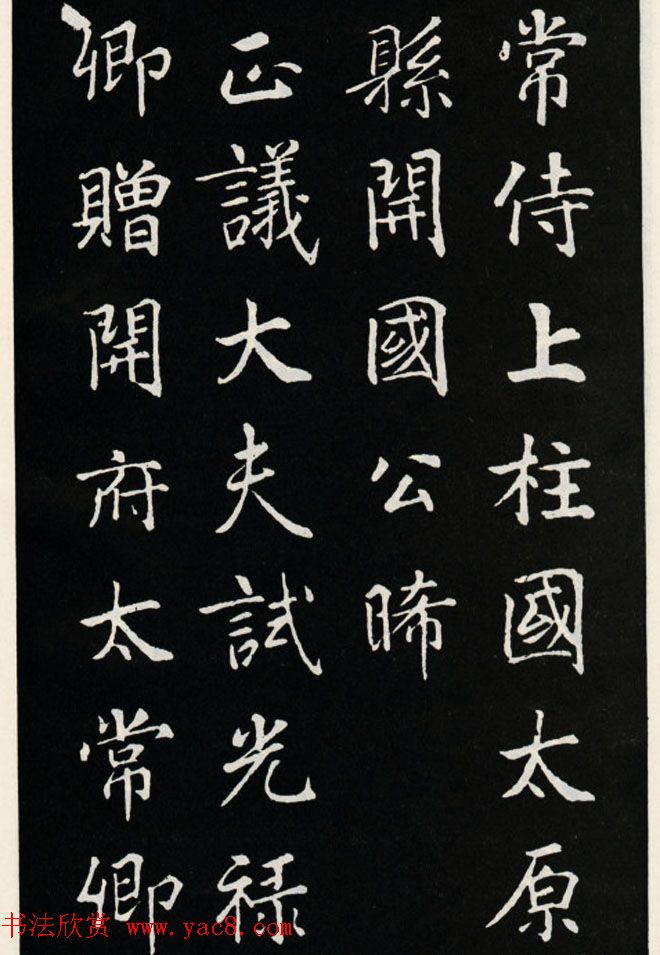 常侍上柱國太原
縣開國公晞
正議大夫試光禄
卿贈開府太常卿
书法欣赏 www.yac8.com